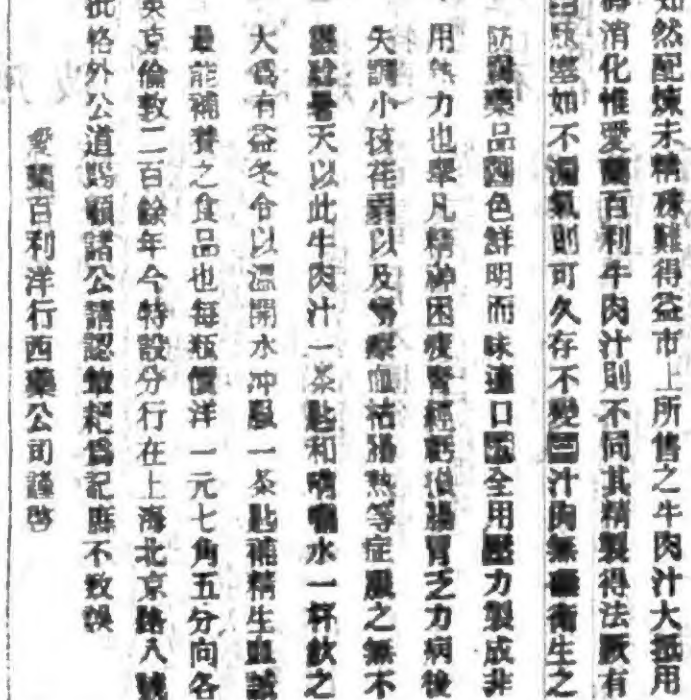 然配煉未精殊難得益市上所售之牛肉汁大抵用
消化惟愛蘭百利牛肉汁則不同其精製得法厥有
如不漏氣則可久存不變因汁內無礙衞生之
防腐藥品顏色鮮明而味適口因全用壓力製成非
用熱力也舉凡精神困疲腎經虧損腸胃乏力病後
失調小孩花弱以及勞瘵血枯腸熱等症服之無不
靈驗暑天以此牛肉汁一茶匙和嗬囒水一杯飲之
大爲有益冬令以溫開水冲服一茶匙補精生血誠
最能補養之食品也每瓶價洋一元七角五分向各
英京倫敦二百餘年今特設分行在上海北京路八號
批格外公道賜顧諸公請認敝耙爲記庶不致誤
愛蘭百利洋行西藥公司謹啓